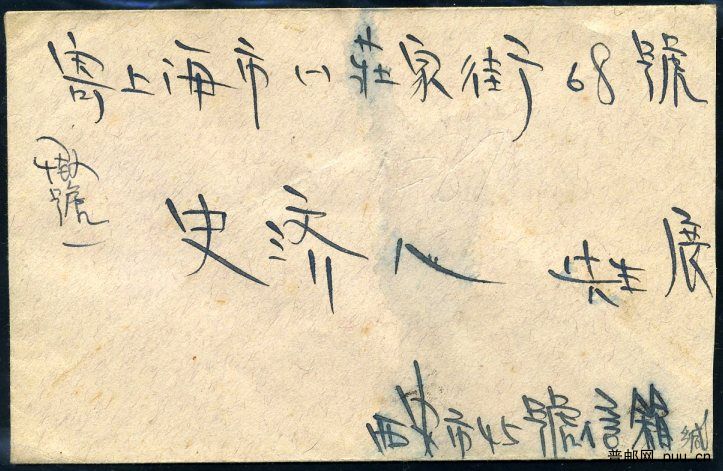 寄上海市八莊家街68號
史济人 先生 展
西安市45號信箱 缄
普邮网 puu.cn